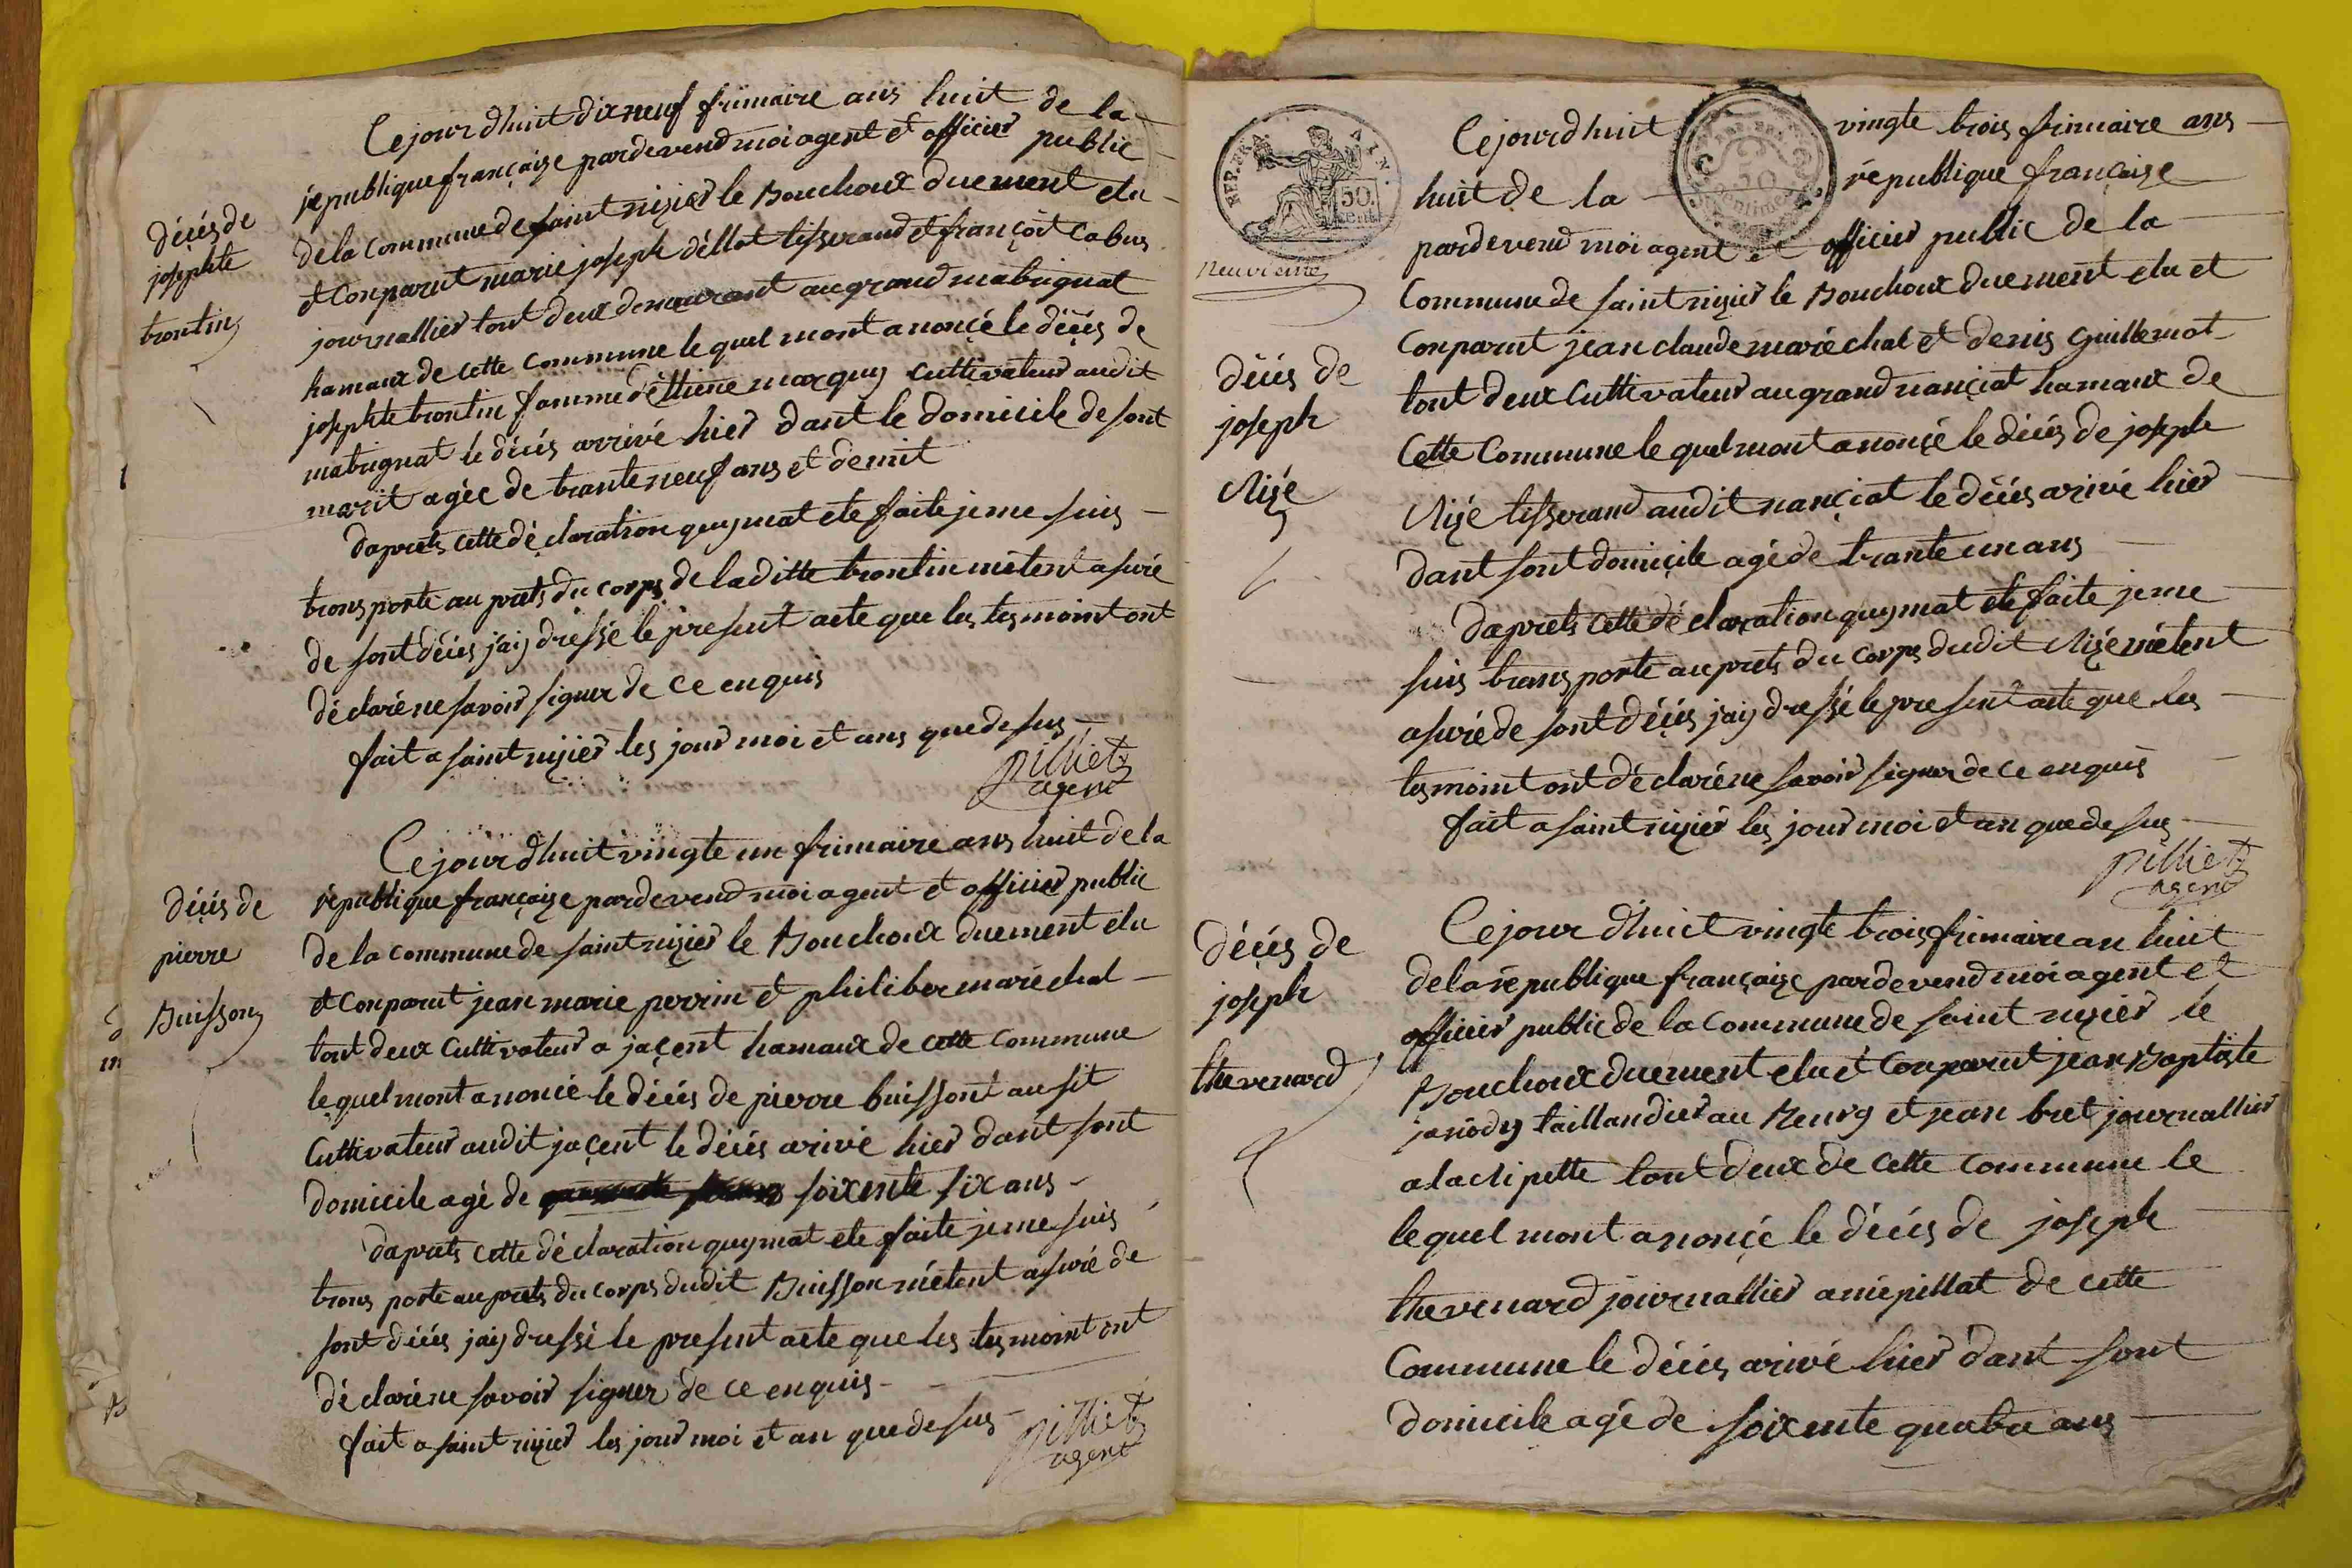 Cejourdhuit dix neuf frimaire ans huit de la
république française pardevend moi agent et officier public
de la commune de saint nizier le Bouchoux duement elu
et Conparut marie joseph déllot tisserand et françoit Cabus
journallier tout deux demeurant au grand mabrignat
hamaux de cette commune le quel mont anoncé le décés de
josephte trontin famme dèttiene marquy cultivateur audit
mabrignat le décés arrivé hier dant le domicile de sont
marit agée de trante neuf ans et demit
daprets cette déclaration quy mat ete faite je me suis
trans porté au prets du corps de laditte trontin mètent asuré
de sont décés jaij dressé le present acte que les tesmoint ont
déclaré ne savoir signer de ce enquis
fait a saint nizier les jour moi et ans que desus
pilliet
agent
décés de
josephte
trontin
Cejourdhuit vingte un frimaire ans huit de la
république française pardevend moi agent et officier public
de la commune de saint nizier le Bouchoux duement elu
et Conparut jean marie perrin et philiber maréchal
tout deux Cultivateur a jaçent hamaux de cette commune
le quel mont anoncé le décés de pierre buissont ausit
Cultivateur audit jaçent le décés arivé hier dant sont
domicile agé de soixente six ans
daprets cette déclaration quymat ete faite je me suis
trans porté au prets du corps dudit Buisson métent asuré de
sont décés jaij dressé le present acte que les tesmoint ont
déclaré ne savoir signer de ce enquis
fait a saint nizier les jour moi et an que desus
pilliet
agent
décés de
pierre
Buisson
REP. FRA. AIN.
50
cent.
neuvieme
50
Centimes
Cejourdhuit vingte trois frimaire ans
huit de la république française
pardevend moi agent et officier public de la
Commune de saint nizier le Bouchoux duement elu et
Conparut jean claude maréchal et denis guillemot
tout deux Cultivateur au grand nançiat hamaux de
Cette Commune le quel mont anonçé le décés de joseph
Nizé tisserand audit nançiat le décés arivé hier
dant sont domiçile agé de trante un ans
daprets cette déclaration quymat ete faite je me
suis trans porté au prets du corps dudit Nizé métent
asuré de sont décés jaij dressé le present acte que les
tesmoint ont déclaré ne savoir signer de ce enquis
fait a saint nizier les jour moi et an que desus
pilliet
agent
décés de
joseph
Nizé
Cejour dhuit vingte trois frimaire an huit
de la république française pardevend moi agent et
officier public de la commune de saint nizier le
Bouchoux duement elu et Conparut jean Baptiste
janody taillandier au Bourg et jean bret journallier
a la clipette tout deux de cette commune le
le quel mont anonçé le décés de joseph
thevenard journallier a mépillat de cette
Commune le décés arivé hier dant sont
domicile agé de soixente quatre ans
décés de
joseph
thevenard